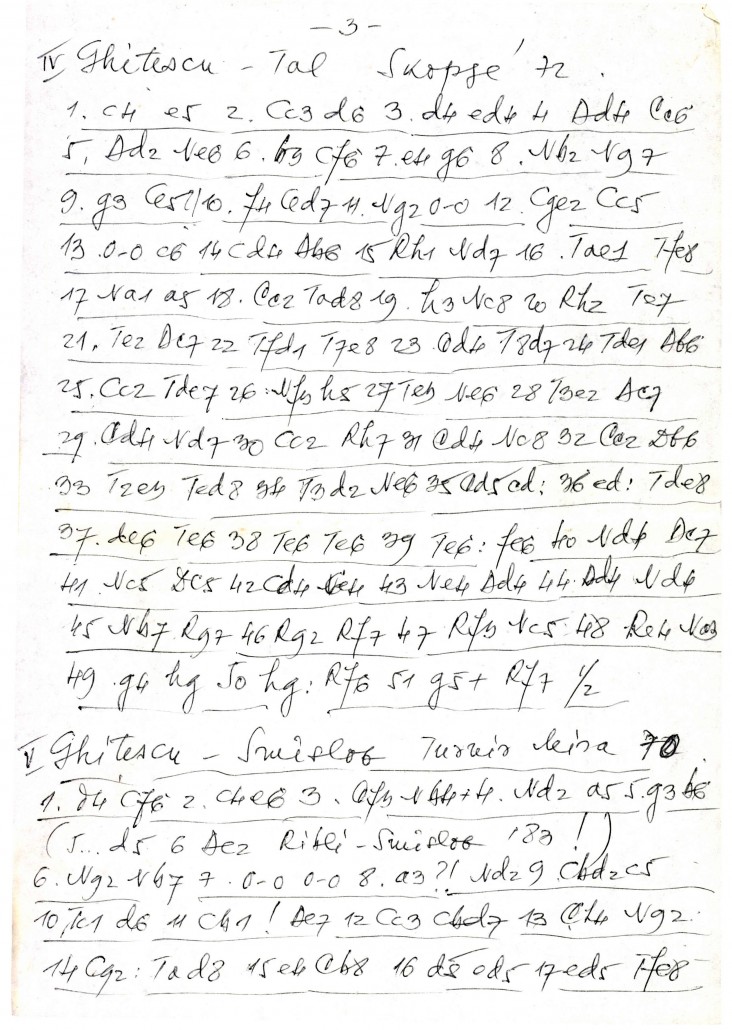 - 3 -
IV Ghitescu - Tal Skopje '72.
1. c4 e5 2. Cc3 d6 3. d4 ed4 4 Ad4 Cc6
5. Ad2 Ne6 6. b3 Cf6 7. e4 g6 8. Nb2 Ng7
9. g3 Ce5! 10. f4 Ced7 11. Ng2 0-0 12. Cge2 Cc5
13. 0-0 c6 14 Cd4 Ab6 15 Rh1 Nd7 16. Tae1 Tfe8
17 Na1 a5 18. Cc2 Tad8 19. h3 Nc8 20 Rh2 Te7
21. Te2 Dc7 22 Tfd1 T7e8 23 Cd4 T8d7 24 Tde1 Ab6
25. Cc2 Tdc7 26. Nf3 h5 27 Te3 Ne6 28 T3e2 Ac7
29. Cd4 Nd7 30 Cc2 Rh7 31 Cd4 Nc8 32 Cc2 Db6
33 T2e3 Ted8 34 T3d2 Ne6 35 Cd5 cd: 36 ed: Tde8
37. de6 Te6 38 Te6 Te6 39 Te6: fe6 40 Nd4 Dc7
41. Nc5 DC5 42 Cd4 Ce4 43 Ne4 Ad4 44. Ad4 Nd4
45 Nb7 Rg7 46 Rg2 Rf7 47 Rf3 Nc5 48 Re4 Na3
49. g4 hg 50 hg: Rf6 51 g5+ Rf7 1/2
V Ghitescu - Smislov Turnir Leira 70.
1. d4 Cf6 2. C4 e6 3. Cf3 Nb4+ 4. Nd2 a5 5. g3 b6
(5... d5 6 Dc2 Ribli - Smislov '83!)
6. Ng2 Nb7 7. 0-0 0-0 8. a3?! Nd2 9. Cbd2 c5
10. Tc1 d6 11 Cb1! De7 12 Cc3 Cbd7 13 Ch4 Ng2:
14 Cg2: Tad8 15 e4 Cb8 16 d5 ed5 17 ed5 Tfe8